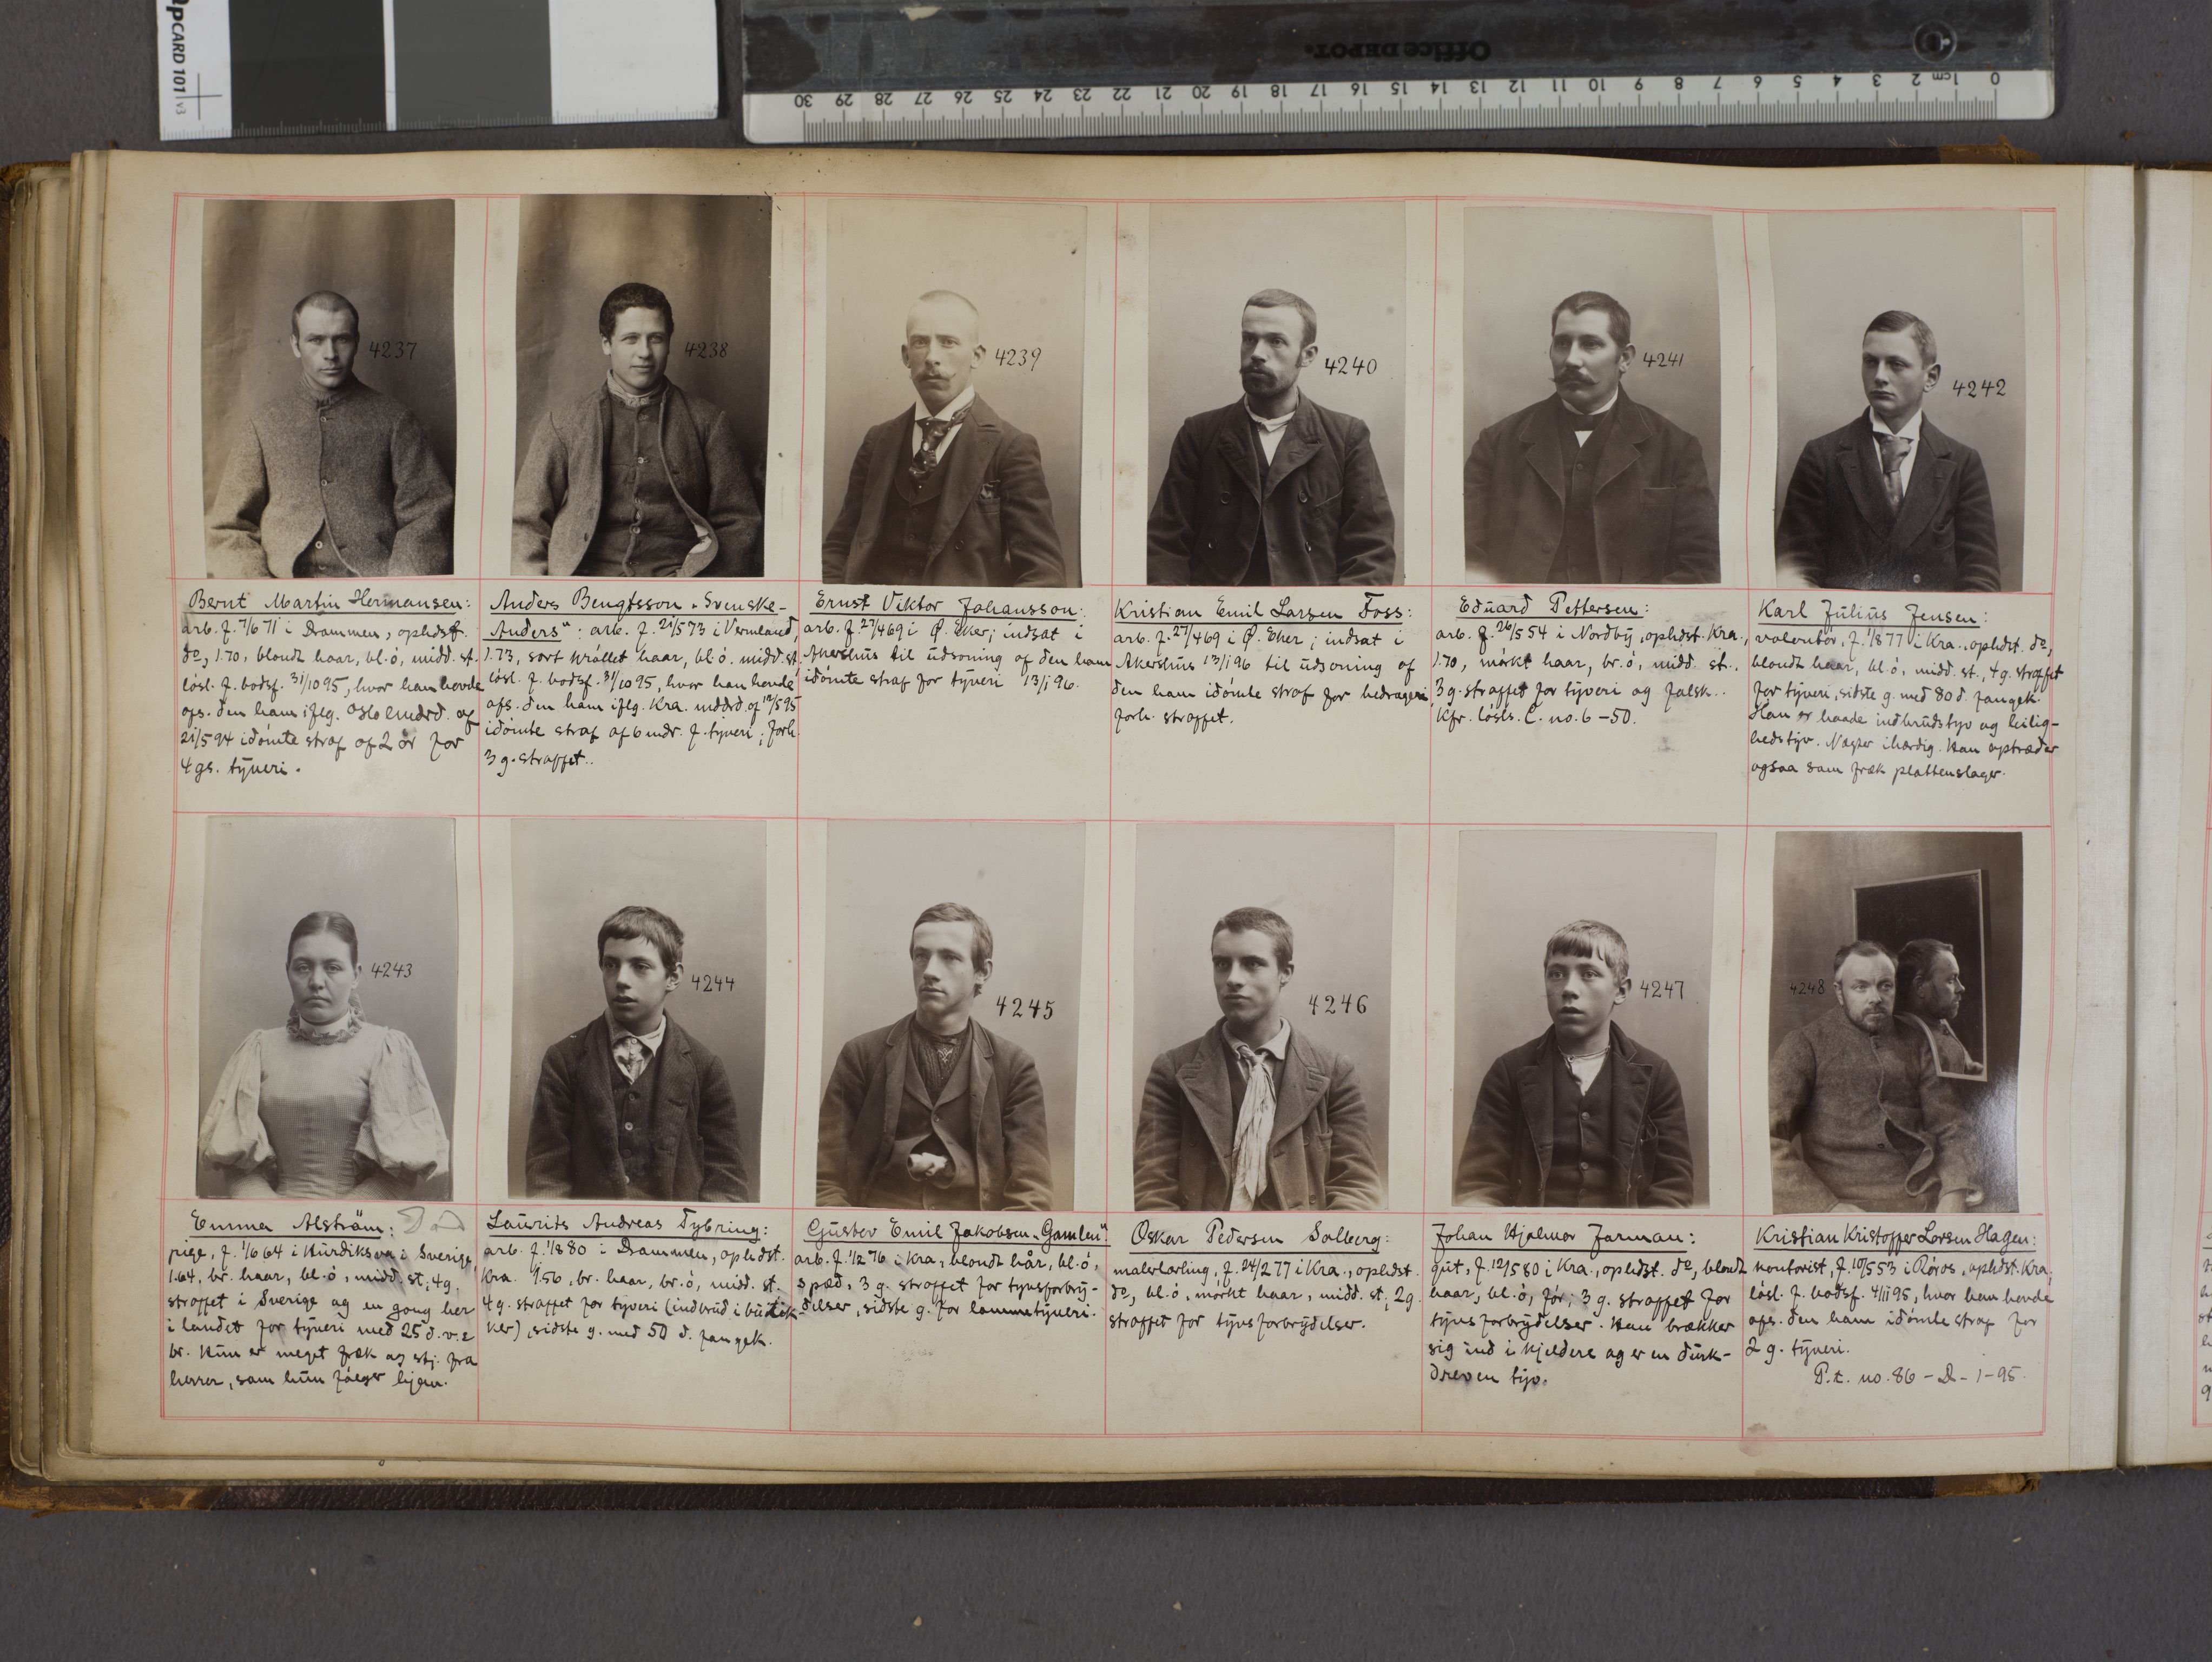 pCARD 101 v3
Office DEPOT.
30 29 28 27 26 25 24 23 22 21 20 19 18 17 16 15 14 13 12 11 10 9 8 7 6 5 4 3 2 1 cm 0
4237
4238
4239
4240
4241
4242
Bernt Martin Hermansen:
arb. f. 7/6 71 i Drammen, ophdst.
do, 1.70, blondt haar, bl. ö, midd. st.
lösl. f. bodsf. 31/10 95, hvor han havde
afs. den ham iflg. Oslo mdrd. af
21/5 94 idömte straf af 2 år for
4 gs. tyveri.
Anders Bengtsson „Svenske-
Anders“: arb. f. 21/5 73 i Vermland,
1.73, sort kröllet haar, bl. ö. midd. st.
lösl. f. bodsf. 31/10 95, hvor han havde
afs. den ham iflg. Kra. mddrd. af 12/5 95
idömte straf af 6 mdr. f. tyveri; forh.
3 g. straffet..
Ernst Viktor Johansson:
arb. f. 27/4 69 i Ø. Eker; indsat i
Akershus til udsoning af den ham
idömte straf for tyveri 13/1 96.
Kristian Emil Larsen Foss:
arb. f. 27/4 69 i Ø. Eker; indsat i
Akershus 13/1 96 til udsoning af
den ham idömte straf for bedrageri
forh. straffet.
Eduard Pettersen:
arb. f. 26/5 54 i Nordby, ophdst. Kra.,
1.70, mörkt haar, br. ö, midd. st.,
3 g. straffet for tyveri og falsk..
Kfr. lösls. C. no. 6-50.
Karl Julius Jensen:
volontör, f. 1/8 77 i Kra., ophdst. do,
blondt haar, bl. ö, midd. st., 4 g. straffet
for tyveri, sidste g. med 80 d. fangek.
Han er baade indbrudstyv og leilig-
hedstyv. Nægter ihærdig. Han optræder
ogsaa som fræk plattenslager.
4243
4244
4245
4246
4247
4248
Emma Alström: Död
pige, f. 1/6 64 i i Sverige,
1.64, br. haar, bl. ö, midd. st; 4 g.
straffet i Sverige og en gang her
i landet for tyveri med 25 d. v. &
br. Hun er meget fræk og stj. fra
herrer, som hun følger hjem.
Laurits Andreas Tybring:
arb. f. 1/8 80 i Drammen, ophdst.
Kra. 1.56, br. haar, br. ö, midd. st.
4 g. straffet for tyveri (indbrud i butik-
ker), sidste g. med 50 d. fangek.
Gustav Emil Jakobsen „Gamlen“
arb. f. 1/2 76 i Kra, blondt hår, bl. ö,
spæd, 3 g. straffet for tyvsforbry-
delser, sidste g. for lommetyveri.
Oskar Pedersen Solberg:
malerlærling, f. 24/2 77 i Kra., ophdst.
do, bl. ö, mörkt haar, midd. st; 2 g.
straffet for tyvsforbrydelser.
Johan Hjalmar Jarman:
gut, f. 12/5 80 i Kra., ophdst. do, blondt
haar, bl. ö, för; 3 g. straffet for
tyvsforbrydelser. Han brækker
sig ind i kjeldere og er en durk-
dreven tyv.
Kristian Kristoffer Larsen Hagen:
kontorist, f. 10/5 53 i Röros, ophdst. Kra.
lösl. f. bodsf. 4/11 95, hvor han havde
afs. den ham idömte straf for
2 g. tyveri.
P.t. no. 86 - D - 1-95.